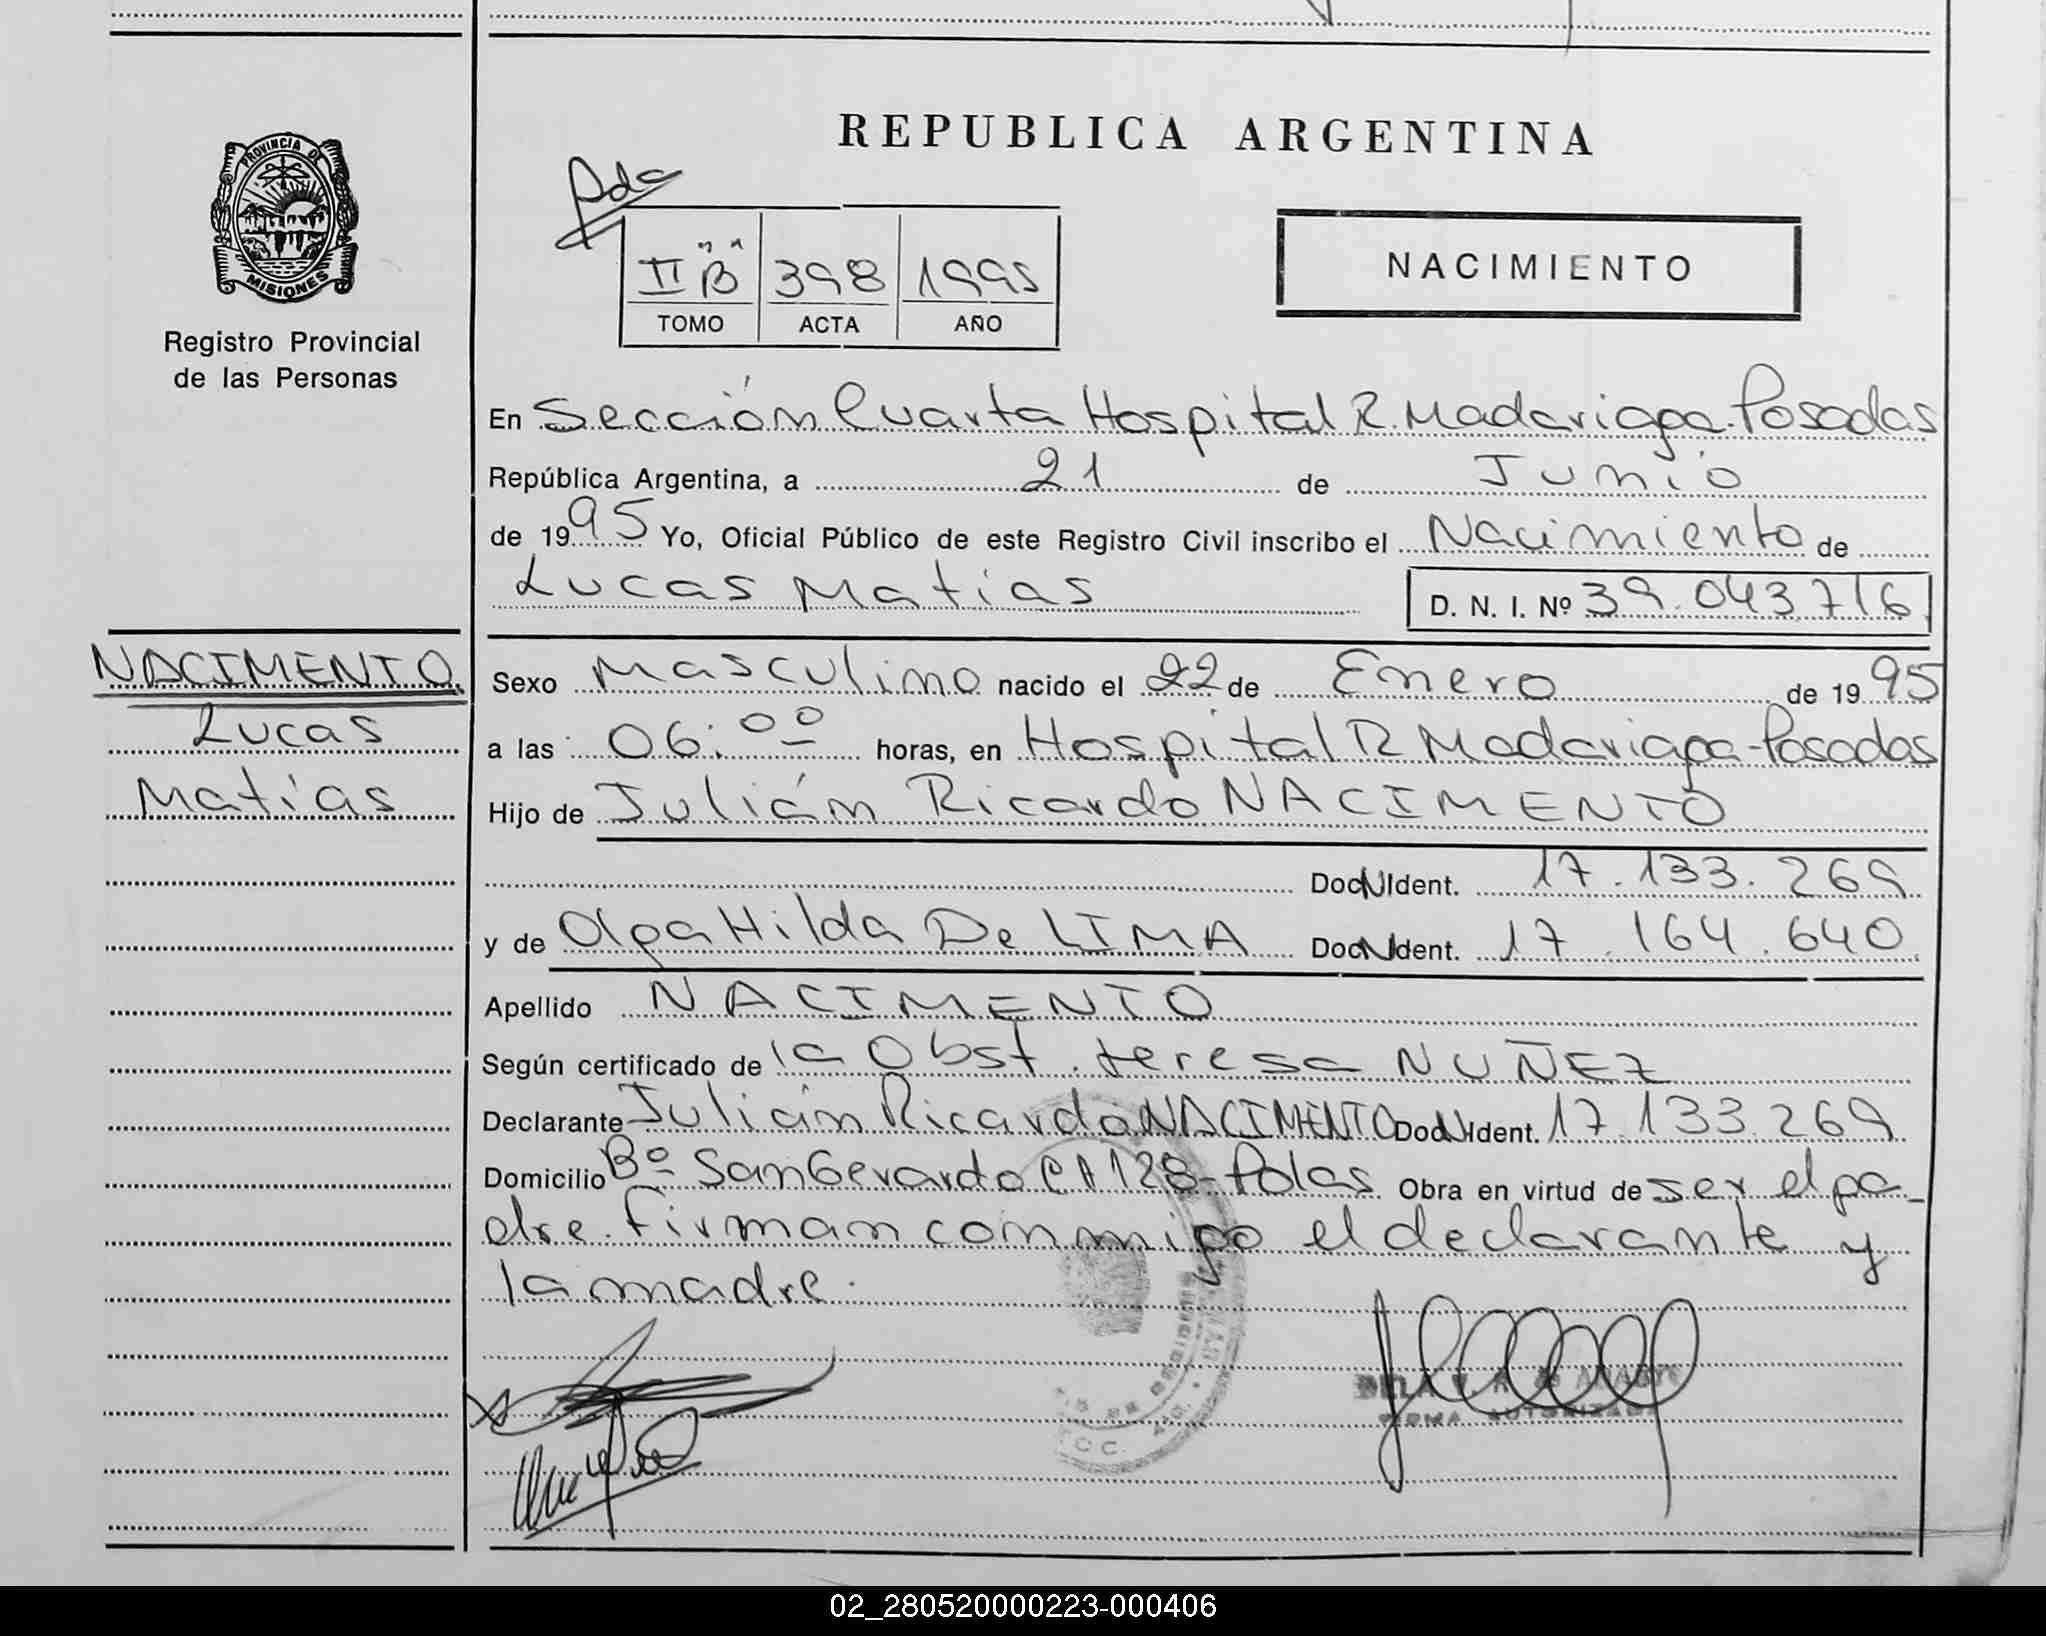 REPUBLICA ARGENTINA
PROVINCIA DE
MISIONES
Registro Provincial
de las Personas
Pda
II "B" 398 1995
TOMO ACTA AÑO
NACIMIENTO
En Sección Cuarta Hospital R. Madariaga. Posadas
República Argentina, a 21 de Junio
de 1995 Yo, Oficial Público de este Registro Civil inscribo el Nacimiento de
Lucas Matias D. N. I. Nº 39.043.716
NACIMENTO
Lucas
Matías
Sexo Masculino nacido el 22 de Enero de 1995
a las 06:00 horas, en Hospital R Madariaga-Posadas
Hijo de Julián Ricardo NACIMENTO
Doc N Ident. 17.133.269
y de Olga Hilda De LIMA Doc N Ident. 17.164.640
Apellido NACIMENTO
Según certificado de la Obst. teresa NUÑEZ
Declarante Julián Ricardo NACIMENTO Doc N Ident. 17.133.269
Domicilio Bº San Gerardo C A 128-Pdas. Obra en virtud de ser el pa_
dre. Firman conmigo el declarante y
la madre.
FIRMA AUTORIZADA
02_280520000223-000406